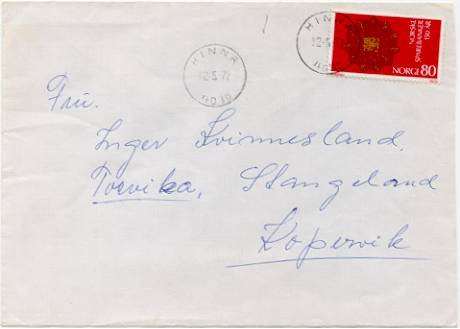 HINNA
12-5 72
4030
HINNA
12-5
NORGE 80
Fru.
Inger Kvinnesland,
Torvika, Stangeland
Kopervik